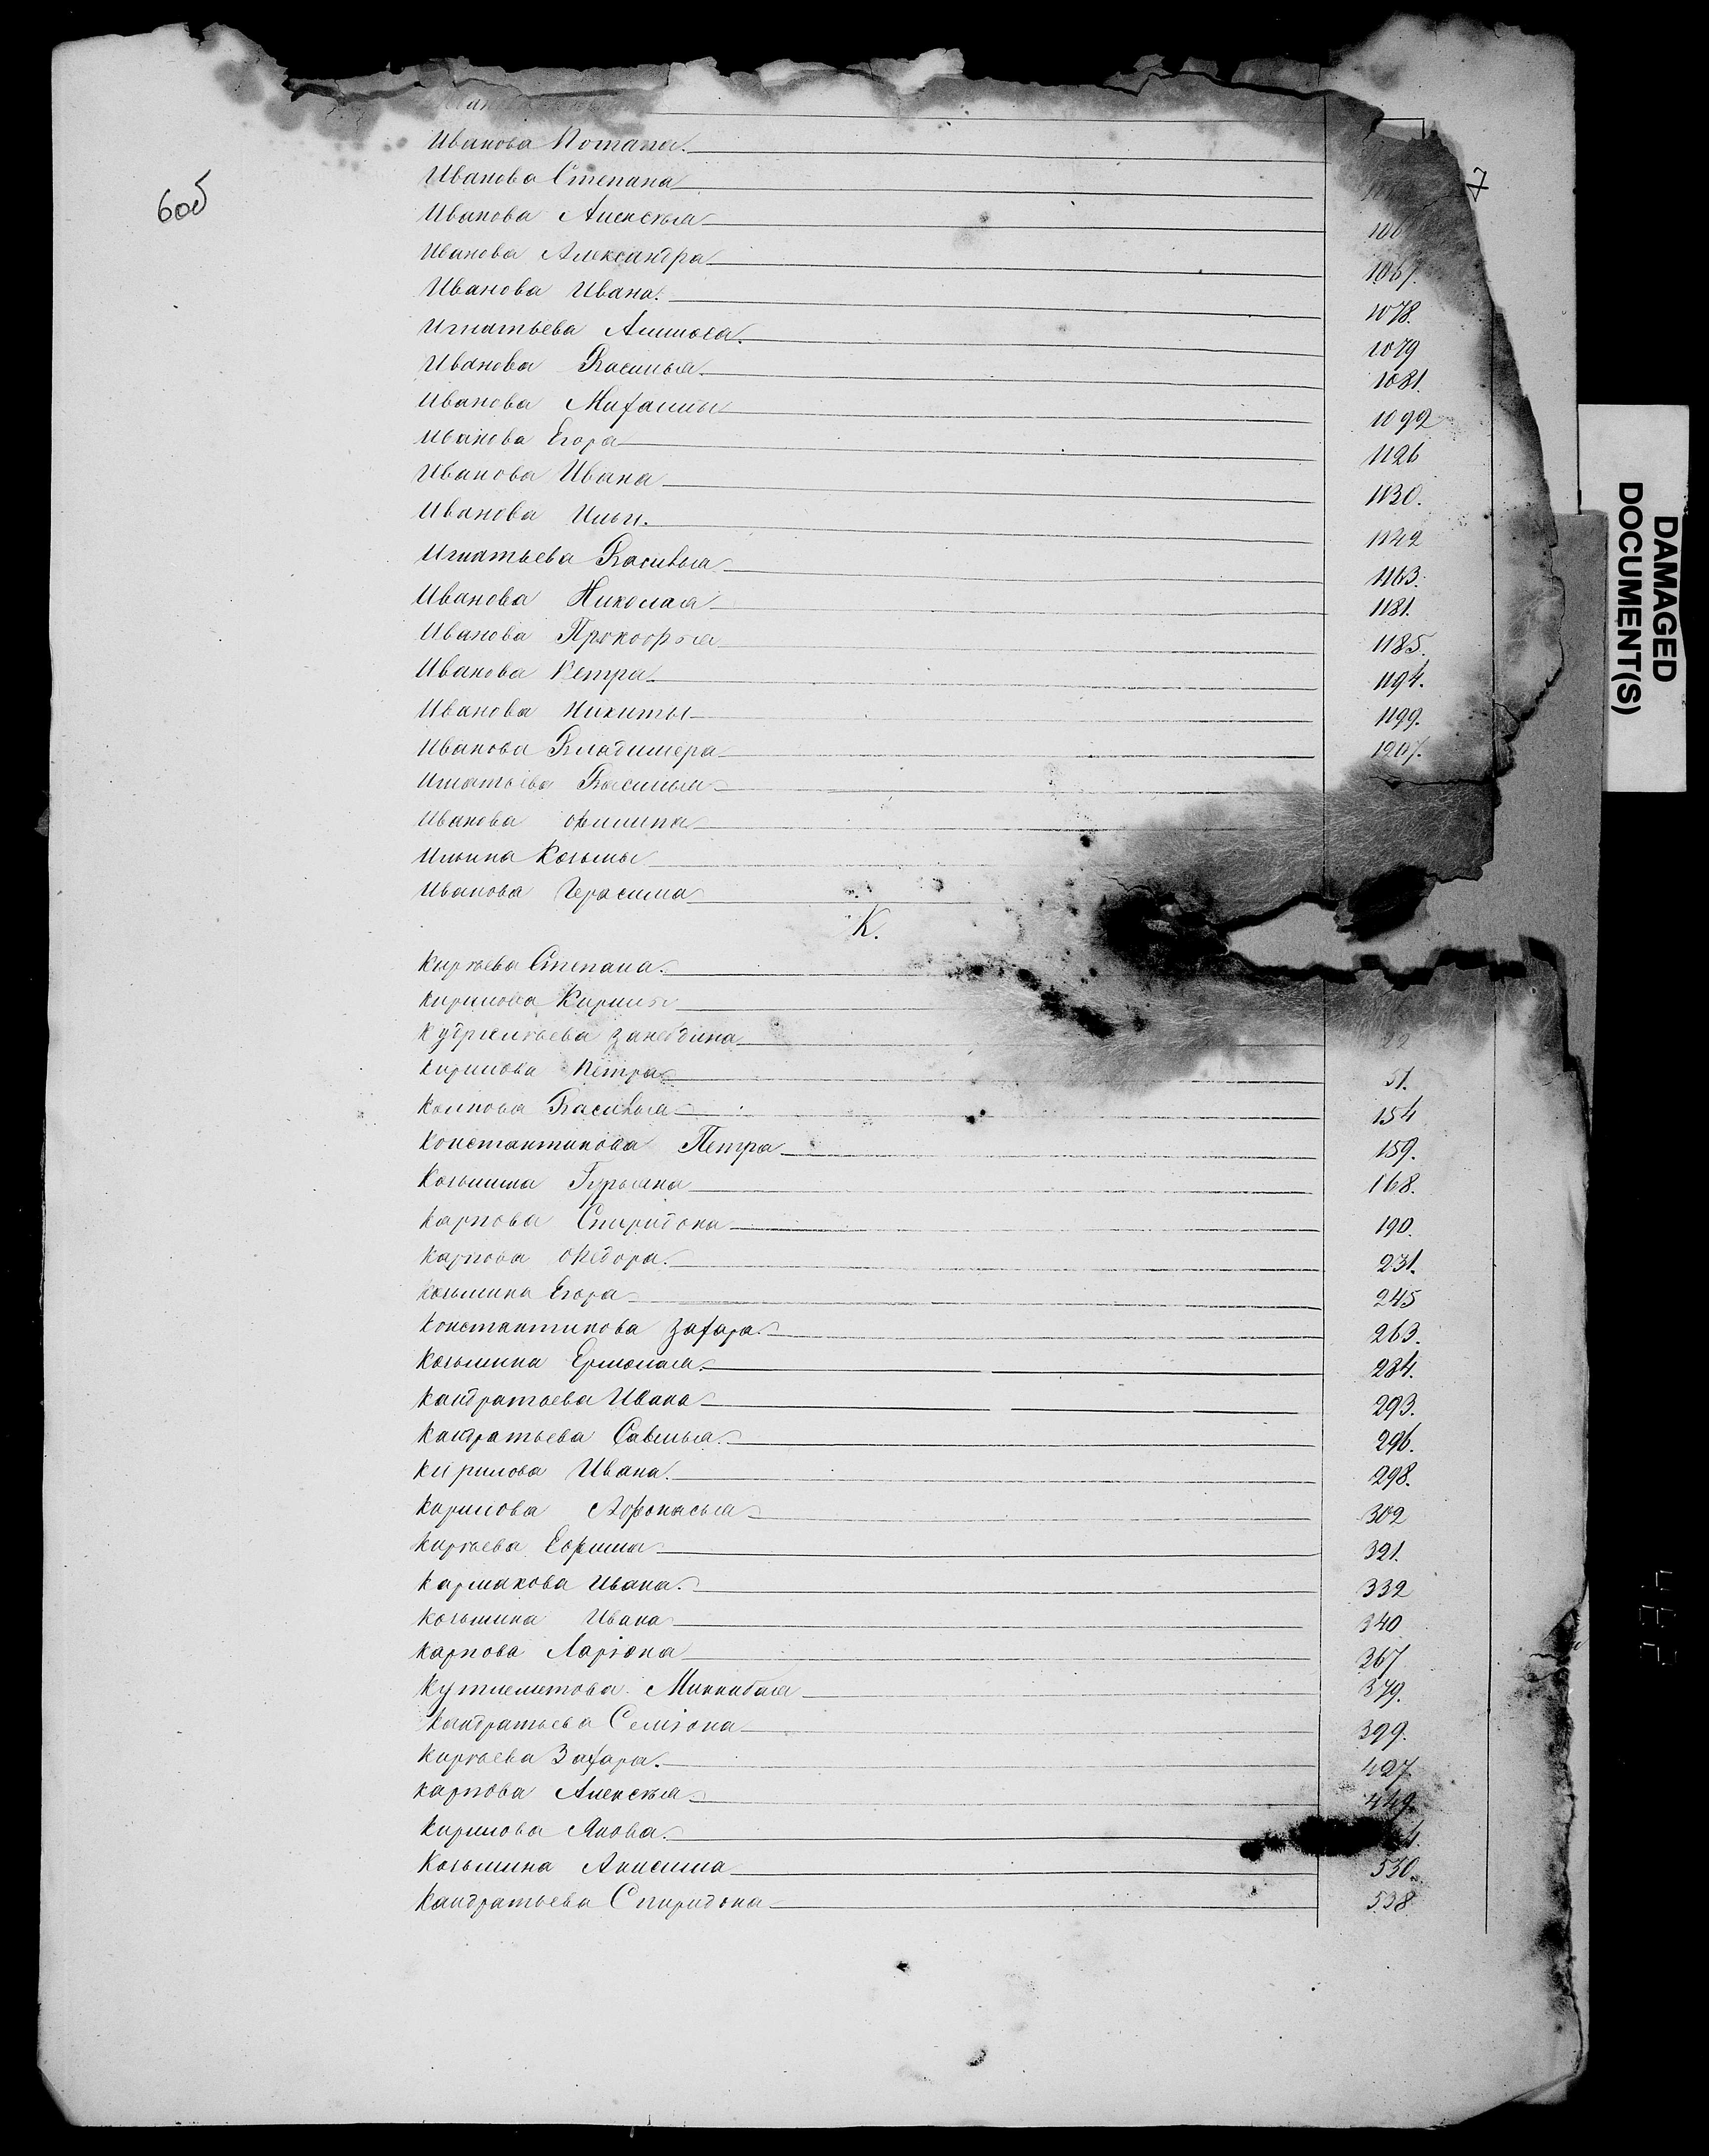 Иванова Потапа.
6об
Иванова Степана
7
Иванова Алексѣя 106
Иванова Александра 1067.
Иванова Ивана. 1078.
Игнатьева Алексѣя. 1079
Иванова Василья. 1081.
Иванова Михаилы 1092
Иванова Егора 1126
Иванова Ивана 1130.
Иванова Ильи. 1142
Игнатьева Василья 1163.
Иванова Николая 1181.
Иванова Прокофья 1185.
Иванова Петра 1194.
Иванова Никиты 1199.
Иванова Владимера 1207.
Игнатьева Василья
Иванова Филипа
Ильина Козьмы
Иванова Герасима
К.
Кирѣева Степана.
Кирилова Кирилы
22
Кирилова Петра 51.
Василья 154
Константинова Петра 159.
Козьмина Гурьяна 168.
Карпова Спиридона 190.
Карпова Ѳедора. 231.
Козьмина Егора 245
Константинова Захара. 263.
Козьмина Ермолая. 284.
Кандратьева Ивана 293.
Кандратьева Савелья. 296.
Кирилова Ивана. 298.
Кирилова Афонасья 302
Кирѣева Ефима 321.
Кармакова Ивана. 332
Козьмина Ивана 340
Карпова Ларіона 367
Кутлеметова Миникая 379.
Кандратьева Семіона 399.
Кирѣева Захара. 427
Карпова Алексѣя 449.
Кирилова Якова. 4.
Козьмина Анисима 530.
Кандратьева Спиридона 538
DAMAGED
DOCUMENT(S)